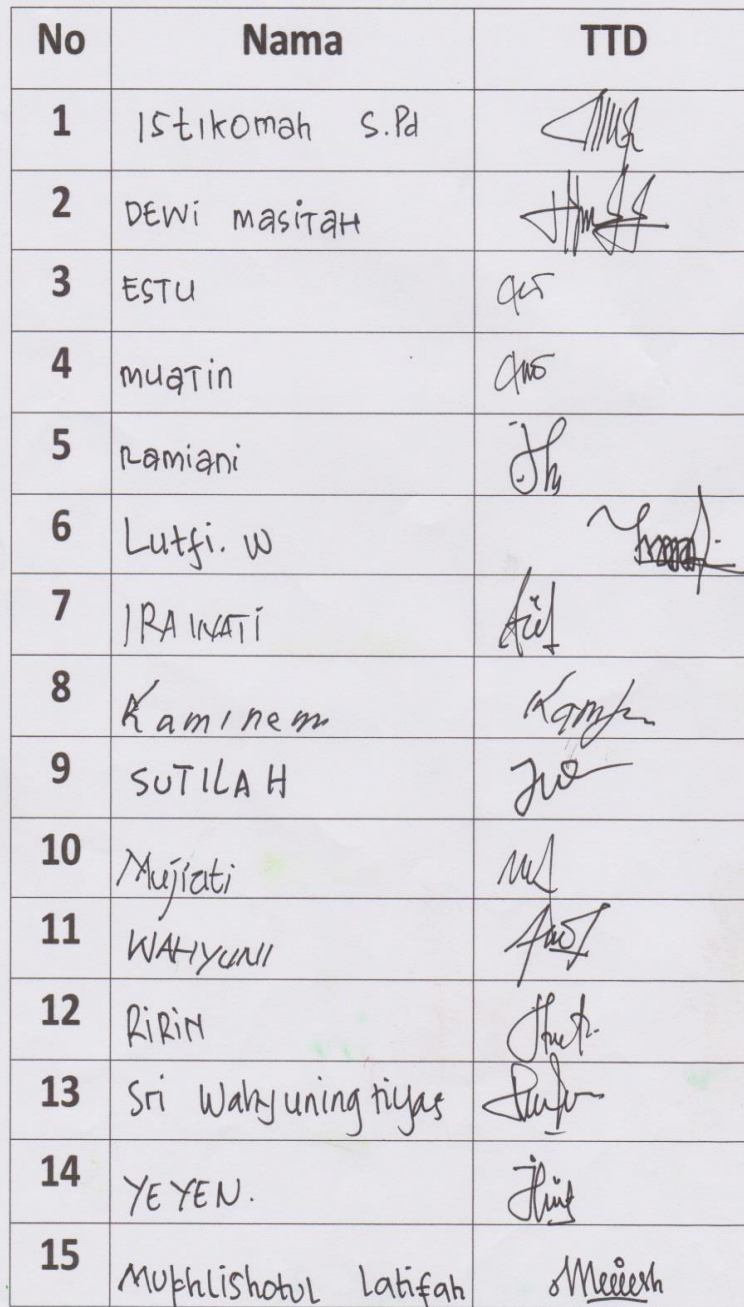 No Nama TTD
1 Istikomah S.Pd
2 DEWi masiTAH
3 ESTU
4 muaTin
5 Ramiani
6 Lutfi. W
7 IRAWATi
8 Kaminem
9 SUTILAH
10 Mujiati
11 WAHYUNI
12 RiRiN
13 Sri Wahyuning tiyas
14 YEYEN.
15 Mukhlishotul Latifah